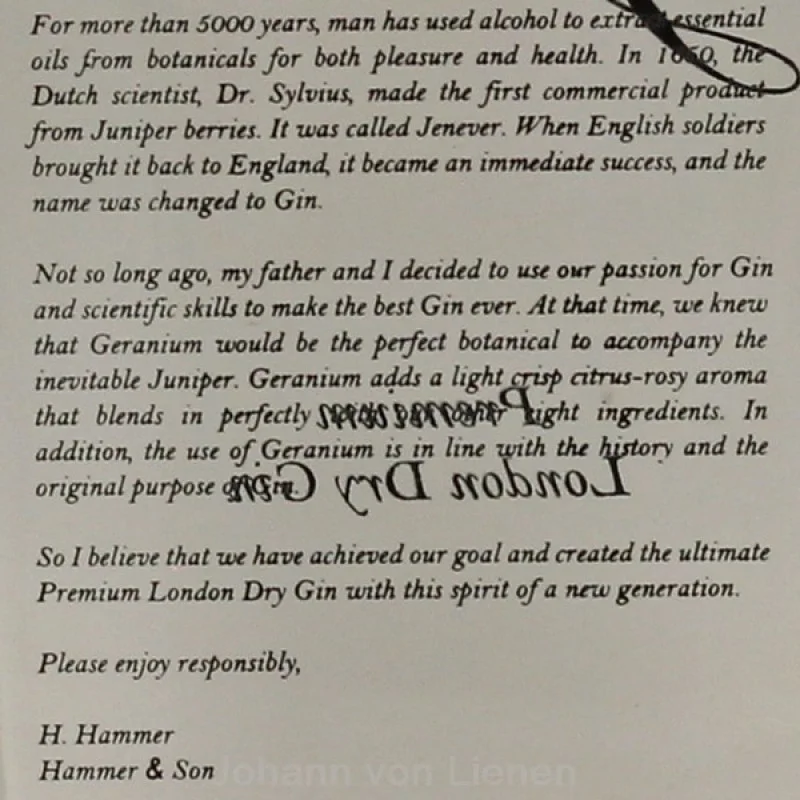 For more than 5000 years, man has used alcohol to extract essential
oils from botanicals for both pleasure and health. In 1650, the
Dutch scientist, Dr. Sylvius, made the first commercial product
from Juniper berries. It was called Jenever. When English soldiers
brought it back to England, it became an immediate success, and the
name was changed to Gin.
Not so long ago, my father and I decided to use our passion for Gin
and scientific skills to make the best Gin ever. At that time, we knew
that Geranium would be the perfect botanical to accompany the
inevitable Juniper. Geranium adds a light crisp citrus-rosy aroma
that blends in perfectly right ingredients. In
Premium
addition, the use of Geranium is in line with the history and the
original purpose
London Dry Gin
So I believe that we have achieved our goal and created the ultimate
Premium London Dry Gin with this spirit of a new generation.
Please enjoy responsibly,
H. Hammer
Hammer & Son
Johann von Lienen